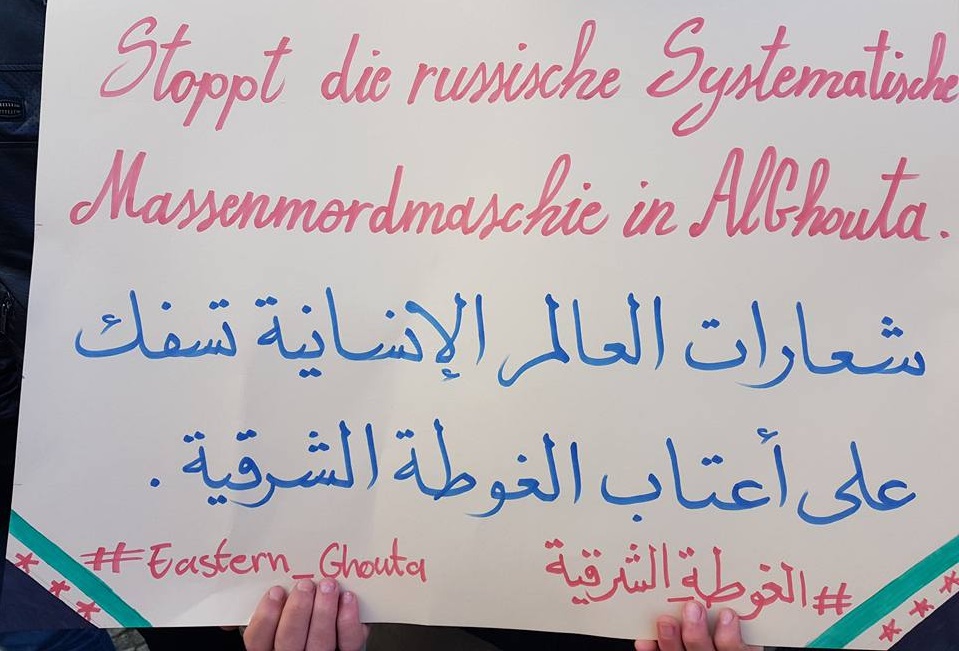 Stoppt die russische Systematische
Massenmordmaschie in AlGhouta.
شعارات العالم الإنسانية تسفك
على أعتاب الغوطة الشرقية .
#Eastern_Ghouta
#الغوطةِ_الشرقية